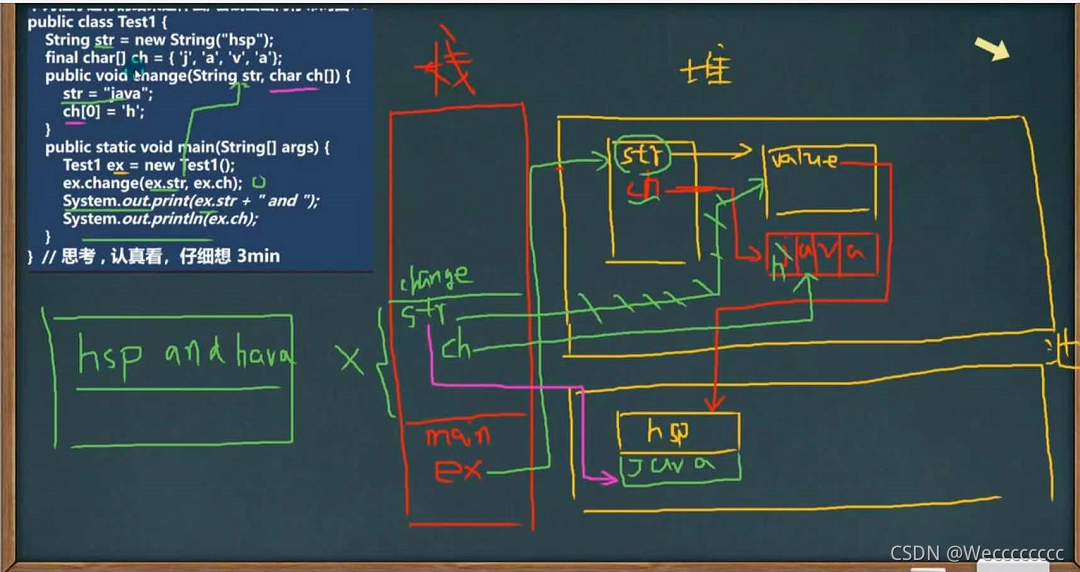 public class Test1 {
String str = new String("hsp");
final char[] ch = { 'j', 'a', 'v', 'a'};
public void change(String str, char ch[]) {
str = "java";
ch[0] = 'h';
}
public static void main(String[] args) {
Test1 ex = new Test1();
ex.change(ex.str, ex.ch);
System.out.print(ex.str + " and ");
System.out.println(ex.ch);
}
} // 思考，认真看，仔细想 3min
栈
堆
str
ch
value
h a v a
change
str
ch
hsp and hava
main
ex
hsp
java
CSDN @Wecccccccc